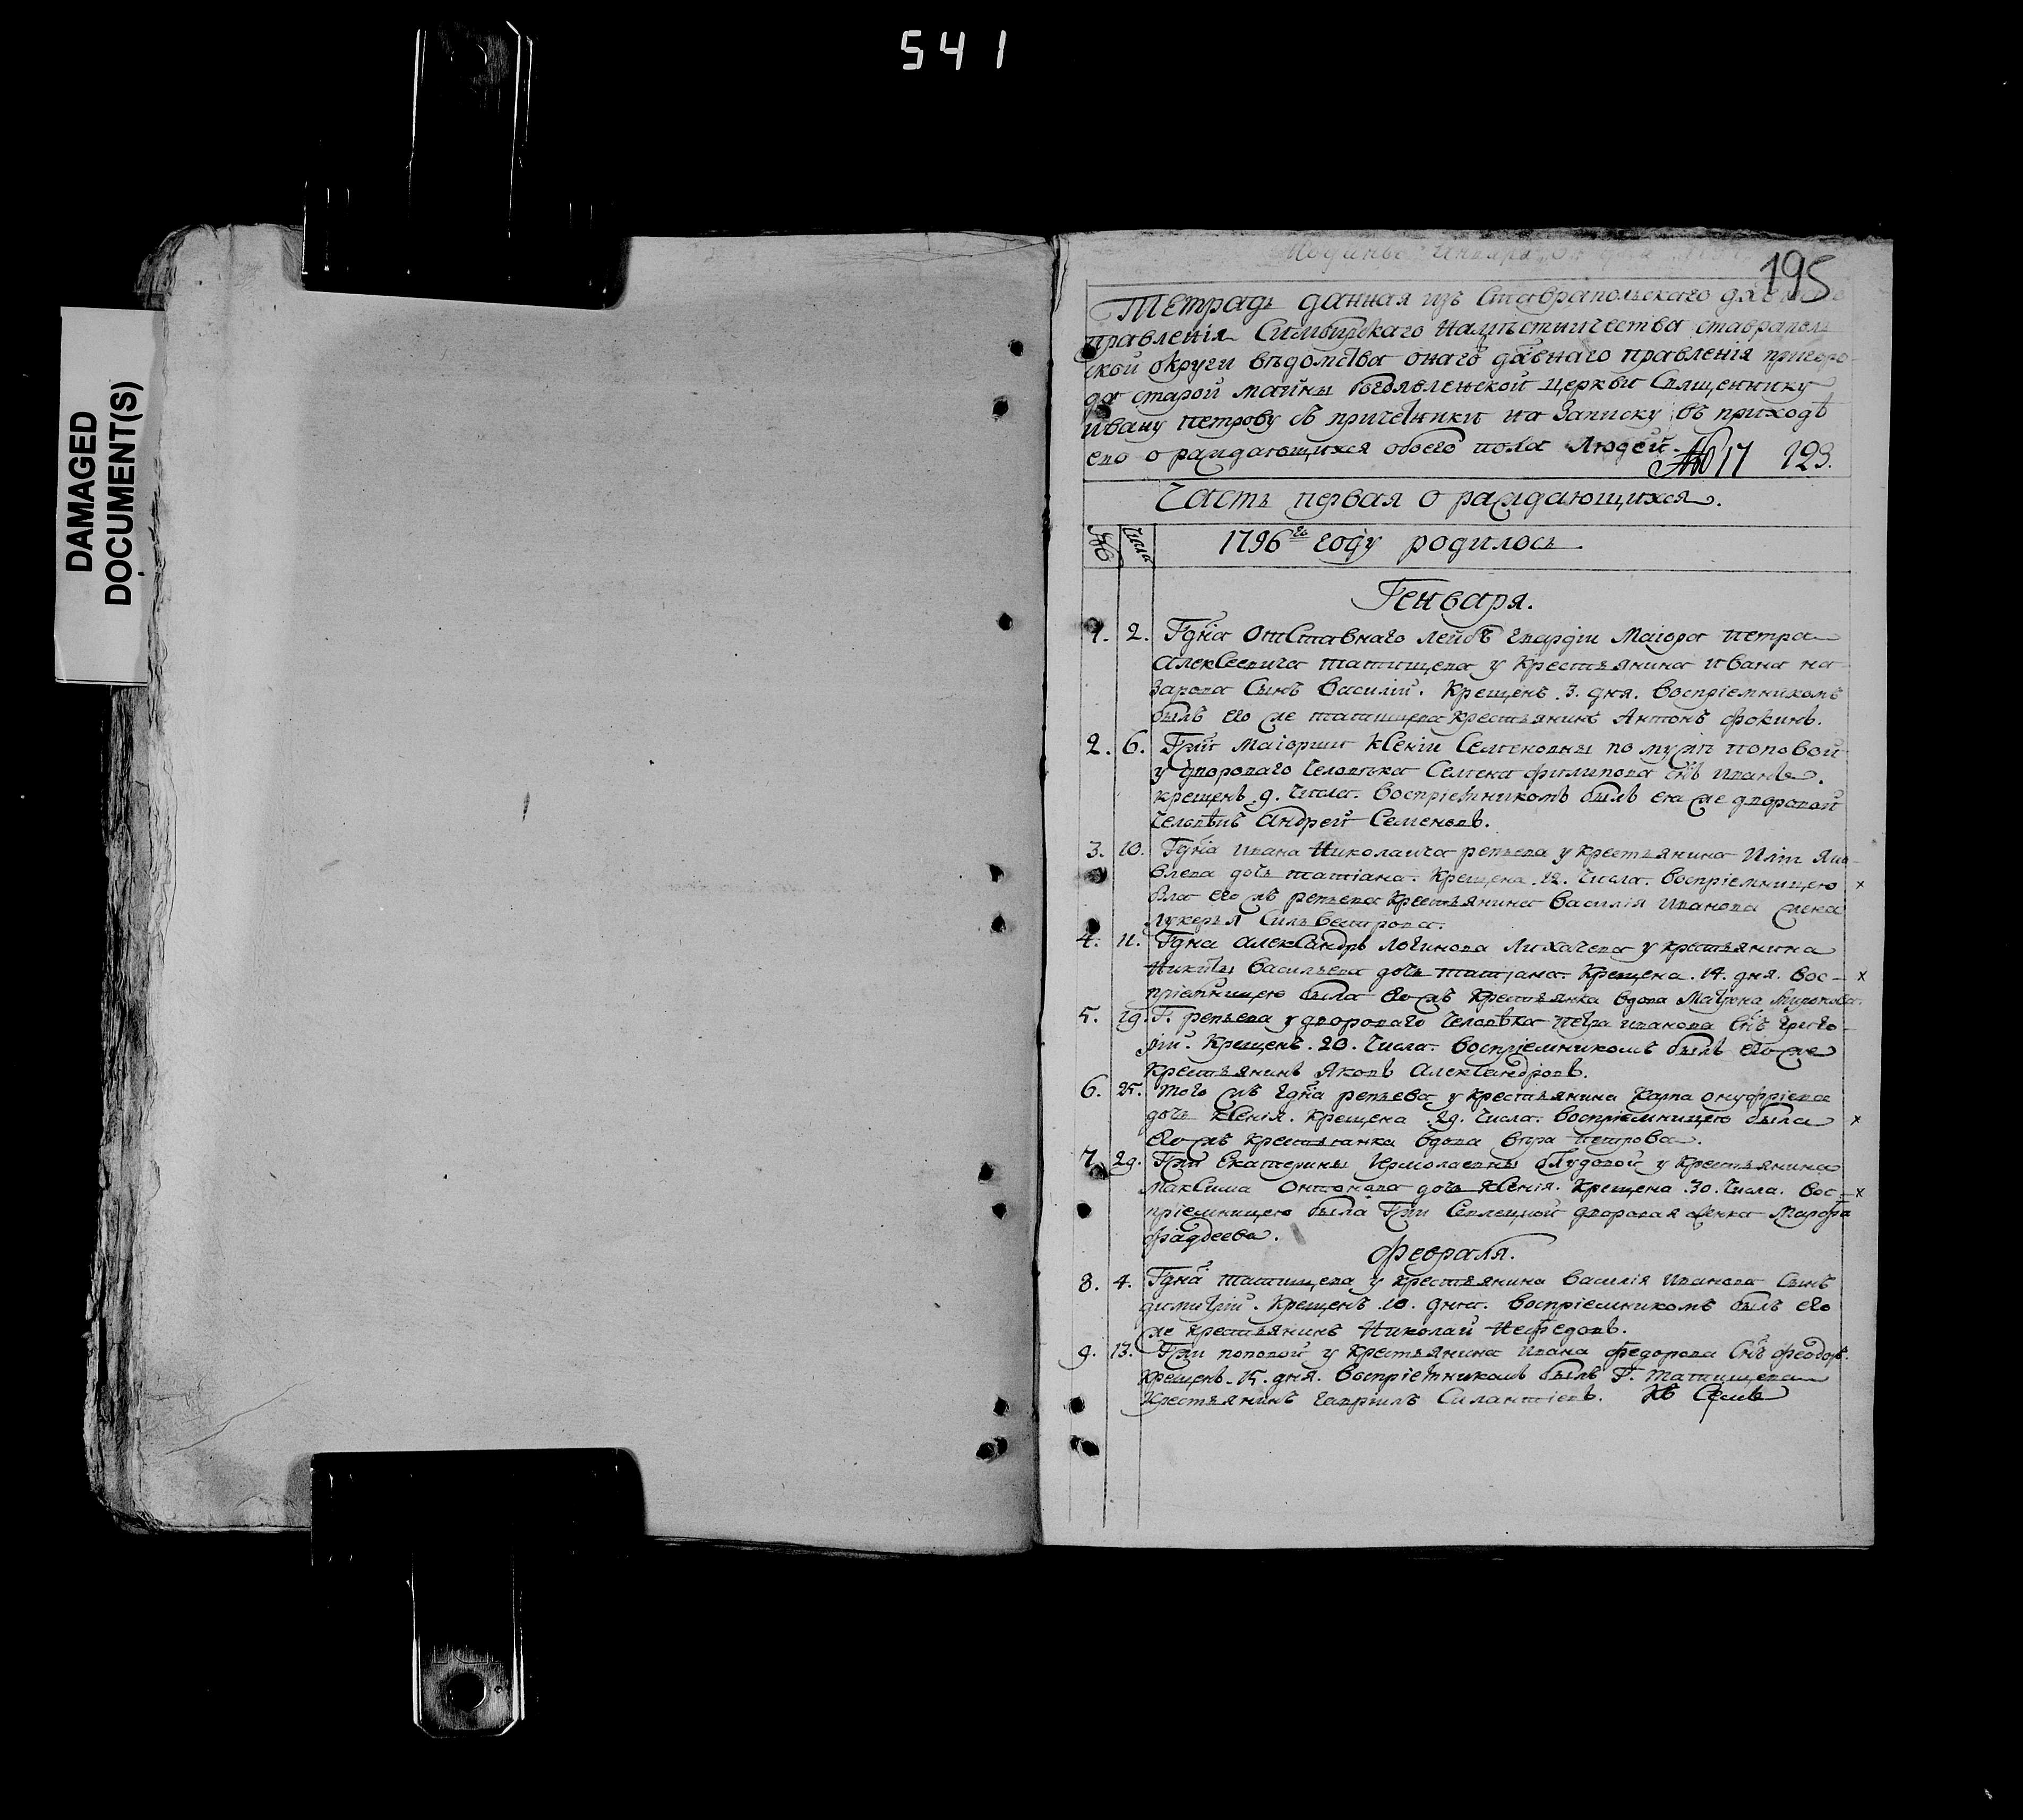 541
DAMAGED
DOCUMENT(S)
195
Тетрадь данная изъ Ставрапольскаго
правленія Симбирскаго Намѣстничества ставраполь
ской округи вѣдомства онаго дховнаго правленія пригоро
да старой майны богоявленской церкви Священнику
ивану петрову съ причетники на Записку въ приходѣ
ево о раждающихся обоего пола людей. №17 123.
Часть первая о раждающихся.
№ Числа 1796го году родилось
Генваря.
1. 2. Гдна Отставнаго лейбъ гвардіи Маіора петра
алексеевича татищева у крестьянина ивана на
зарова Сынъ Василій. Крещенъ .3. дня. воспріемникомъ
былъ его же татищева крестьянинъ Антонъ фокинъ.
2. 6. Гжи Маіорши ксеніи Семеновны по мужѣ поповой
у двороваго человѣка Семена филипова снъ иванъ.
крещенъ .9. числа. воспріемникомъ былъ ея же дворовой
человѣкъ Андрей Семеновъ.
3. 10. Гдна ивана Николаича репьева у крестьянина Иліи Яко
влева дочь татіана. Крещена .12. числа. воспріемницею х
была его жъ репьева крестьянина василія иванова жена
лукерья Сильвестрова.
4. 11. Гдна александръ логинова лихачева у крестьянина
Никиты васильева дочь татіана. Крещена .14. дня. вос- х
пріемницею была его жъ крестьянка вдова Матрена Миронова.
5. 19. Г. репьева у двороваго человѣка петра иванова снъ григо
рій. Крещенъ .20. числа. воспріемникомъ былъ его же
крестьянинъ Яковъ Александровъ.
6. 25. того жъ гдна репьева у крестьянина Карпа онуфріева
дочь ксенія. Крещена .29. числа. воспріемницею была х
его жъ крестьянка вдова вѣра петрова.
7. 29. Гжи Екатерины Ермолаевны блудовой у крестьянина
Максима Онтонова дочь ксенія. Крещена .30. числа. вос- х
пріемницею была Гжи дворовая женка Марфа
фадѣева.
февраля.
8. 4. Гдна татищева у крестьянина василія иванова Сынъ
димитрій. Крещенъ .10. дня. воспріемникомъ былъ его
же крестьянинъ Николай Нефедовъ.
9. 13. Гжи поповой у крестьянина ивана федорова снъ феодоръ.
крещенъ .15. дня. воспріемникомъ былъ Г. татищева
крестьянинъ гаврилъ Силантіевъ.